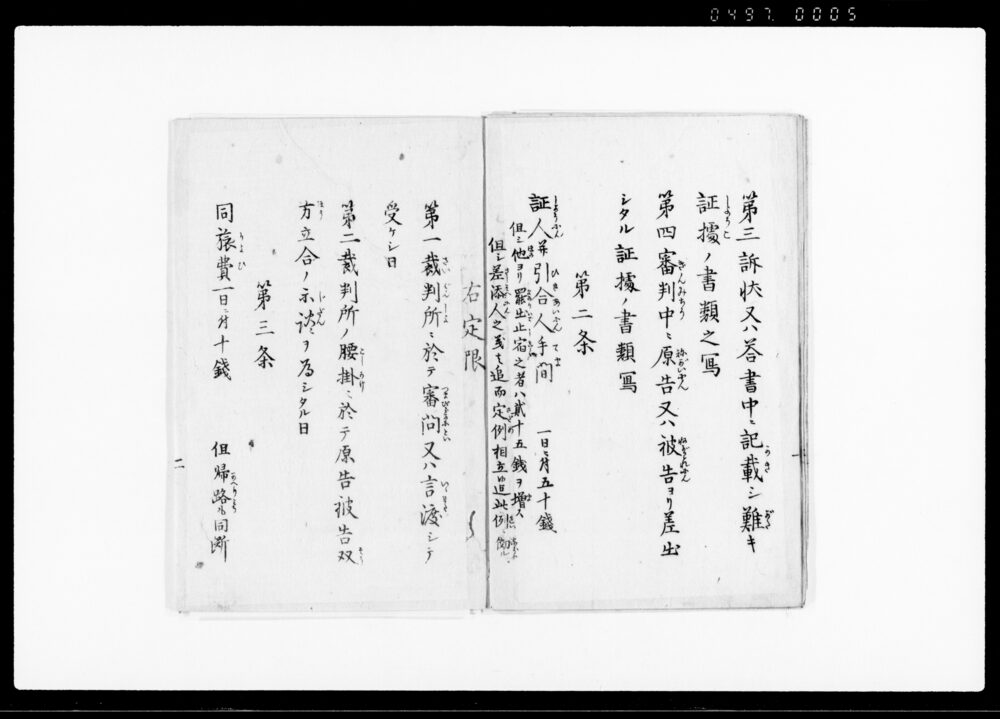 0497. 0005
第三訴状又ハ答書中ニ記載シ難キ
証據ノ書類之寫
第四審判中ニ原告又ハ被告ヨリ差出
シタル証據ノ書類寫
第二条
証人并引合人手間 一日ニ付五十錢
但シ他ヨリ罷出止宿之者ハ貳十五錢ヲ増ス
但シ差添人之義は追而定例相立候迄此例ニ傚ル
右定限
第一裁判所ニ於テ審問又ハ言渡シテ
受ケシ日
第二裁判所ノ腰掛ニ於テ原告被告双
方立合ノ示談ヲ為シタル日
第三条
同旅費一日ニ付十錢 但帰路も同断
二